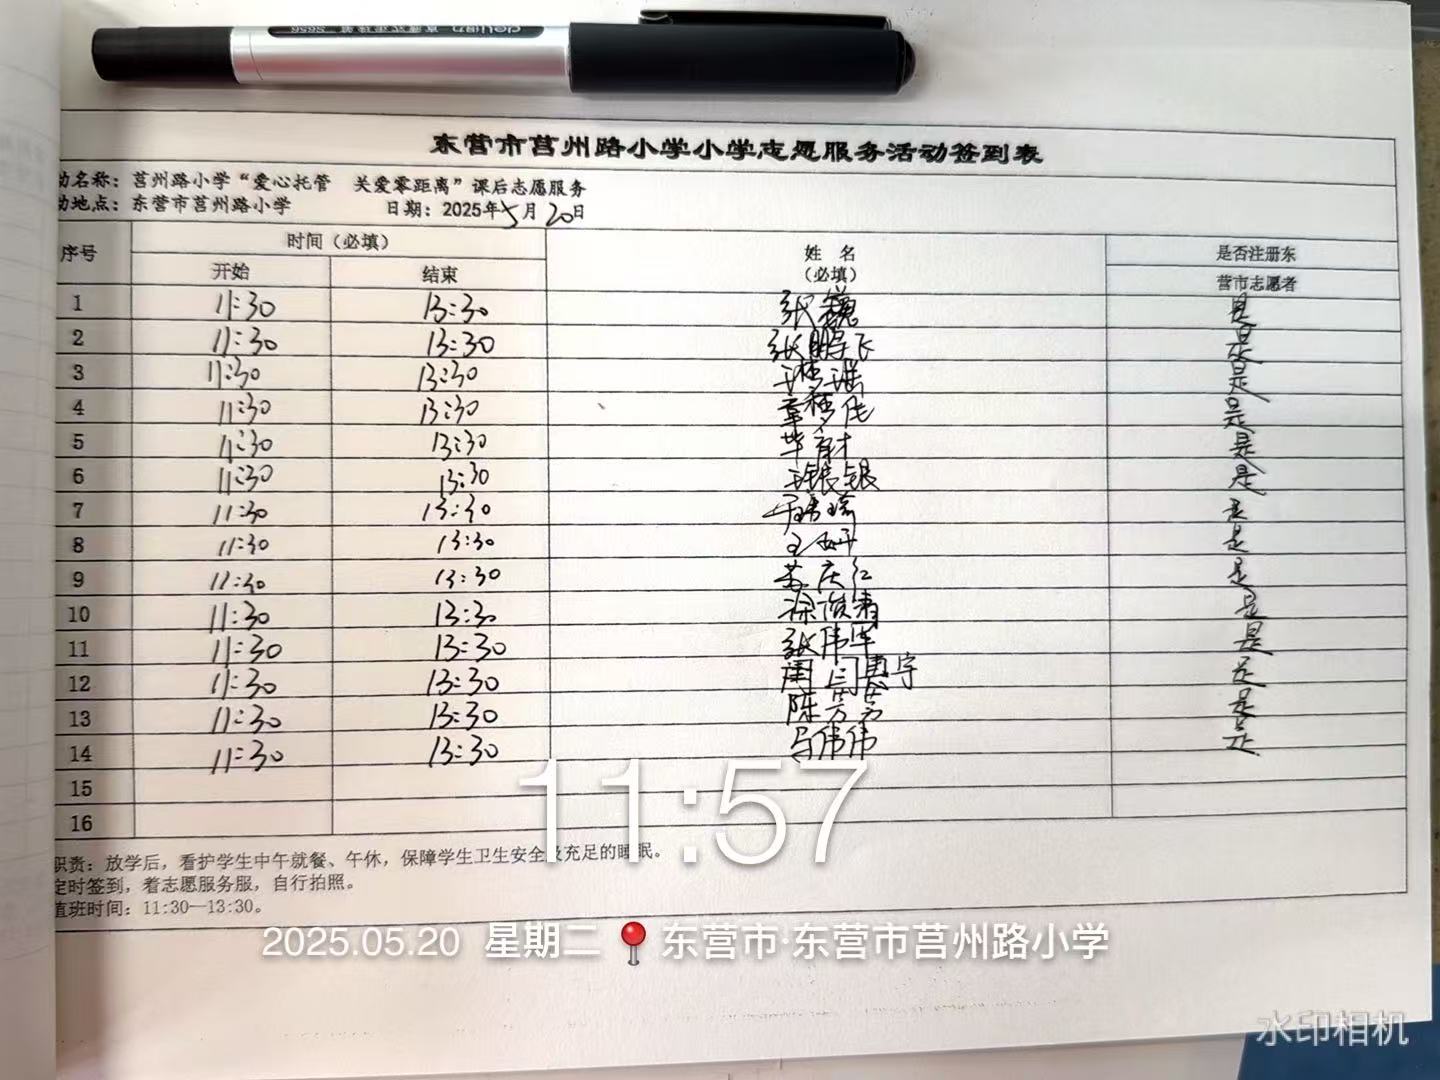 deli
东营市莒州路小学小学志愿服务活动签到表
动名称：莒州路小学“爱心托管 关爱零距离”课后志愿服务
动地点：东营市莒州路小学 日期：2025年5月20日
序号 时间（必填） 姓 名 （必填） 是否注册东 营市志愿者
开始 结束
1 11:30 13:30 张巍 是
2 11:30 13:30 张鹏飞 是
3 11:30 13:30 是
4 11:30 13:30 是
5 11:30 13:30 毕育才 是
6 11:30 13:30 王银银 是
7 11:30 13:30 是
8 11:30 13:30 王妍 是
9 11:30 13:30 苏庆红 是
10 11:30 13:30 徐俊清 是
11 11:30 13:30 张伟华 是
12 11:30 13:30 是
13 11:30 13:30 陈芳芳 是
14 11:30 13:30 马伟伟 是
15
16
职责：放学后，看护学生中午就餐、午休，保障学生卫生安全及充足的睡眠。
定时签到，着志愿服务服，自行拍照。
值班时间：11:30—13:30。
11:57
2025.05.20 星期二 东营市·东营市莒州路小学
水印相机